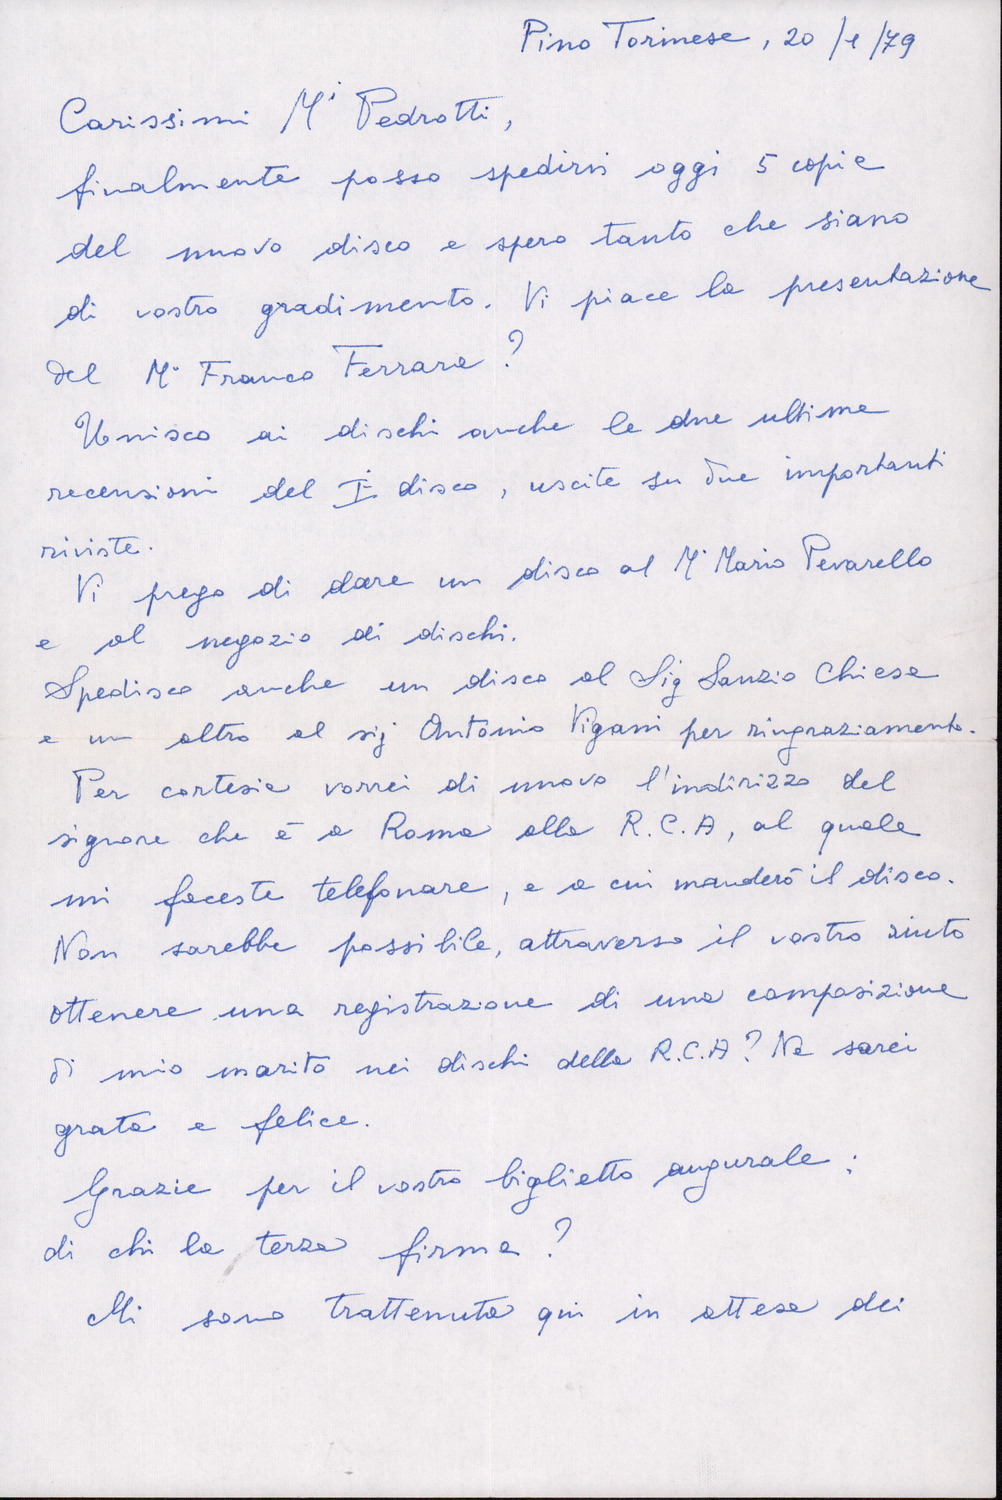 Pino Torinese, 20/1/79
Carissimi Mi Pedrotti,
finalmente posso spedirvi oggi 5 copie
del nuovo disco e spero tanto che siano
di vostro gradimento. Vi piace la presentazione
del M° Franco Ferrara?
Unisco ai dischi anche le due ultime
recensioni del I° disco, uscite su due importanti
riviste.
Vi prego di dare un disco al M° Mario Pevarello
e al negozio di dischi.
Spedisco anche un disco al Sig Sanzio Chiesa
e un altro al sig Antonio Vigani per ringraziamento.
Per cortesia vorrei di nuovo l'indirizzo del
signore che è a Roma alla R.C.A, al quale
mi faceste telefonare, e a cui manderò il disco.
Non sarebbe possibile, attraverso il vostro aiuto
ottenere una registrazione di una composizione
di mio marito nei dischi della R.C.A? Ne sarei
grata e felice.
Grazie per il vostro biglietto augurale;
di chi la terza firma?
Mi sono trattenuta qui in attesa dei